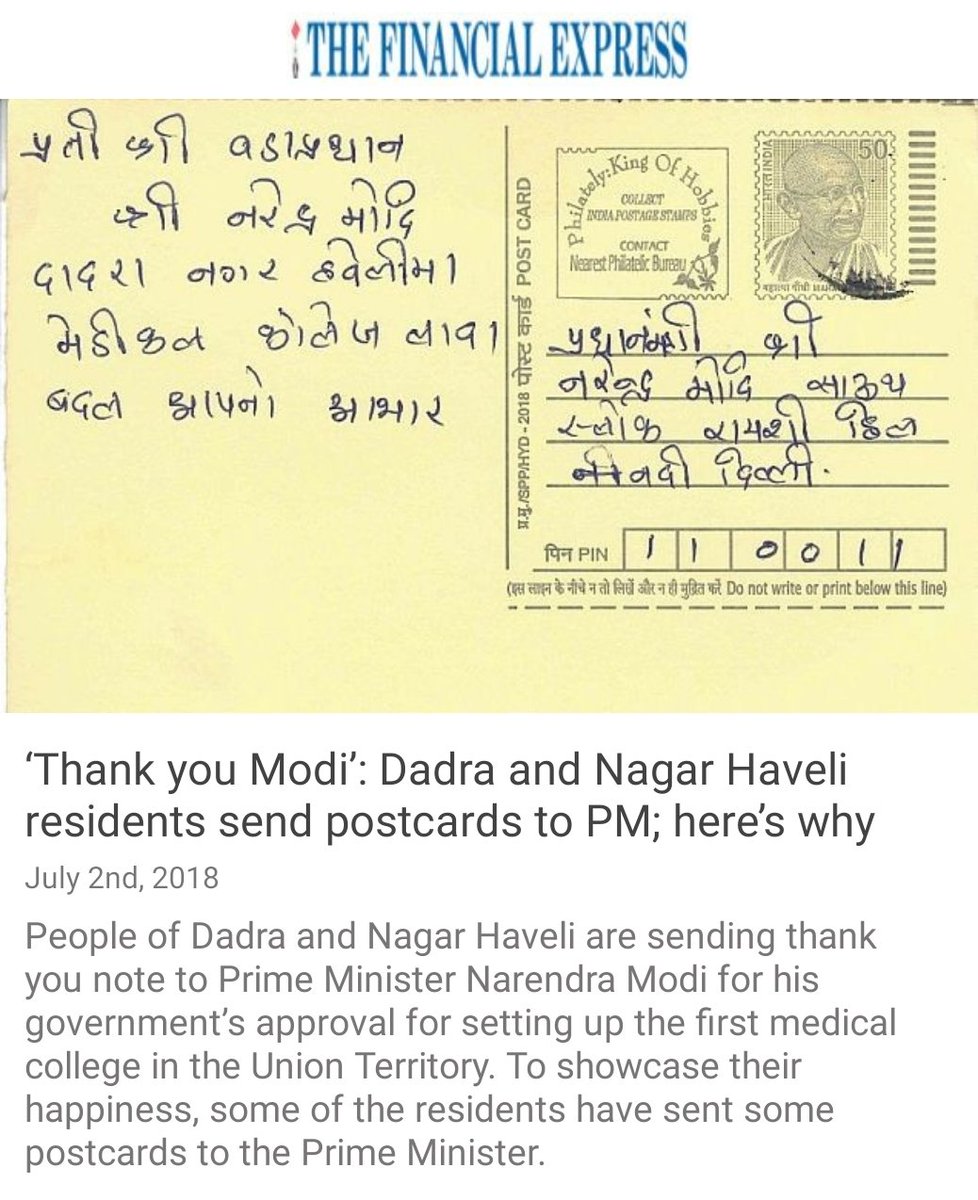 THE FINANCIAL EXPRESS
પ્રતી શ્રી વડાપ્રધાન
શ્રી નરેન્દ્ર મોદિ
દાદરા નગર હવેલીમા
મેડીકલ કોલેજ લાવા
બદલ આપનો આભાર
प्र.मु./SPP/HYD - 2018 पोस्ट कार्ड POST CARD
Philately: King Of Hobbies
COLLECT
INDIA POSTAGE STAMPS
CONTACT
Nearest Philatelic Bureau
भारत INDIA
50
महात्मा गाँधी
શ્રી
નરેન્દ્ર મોદિ સાઉથ
બ્લોક રાયશી હિલ
નવી દિલ્લી.
पिन PIN 1 1 0 0 1 1
(इस लाइन के नीचे न तो लिखें और न ही मुद्रित करें Do not write or print below this line)
‘Thank you Modi’: Dadra and Nagar Haveli
residents send postcards to PM; here’s why
July 2nd, 2018
People of Dadra and Nagar Haveli are sending thank
you note to Prime Minister Narendra Modi for his
government’s approval for setting up the first medical
college in the Union Territory. To showcase their
happiness, some of the residents have sent some
postcards to the Prime Minister.